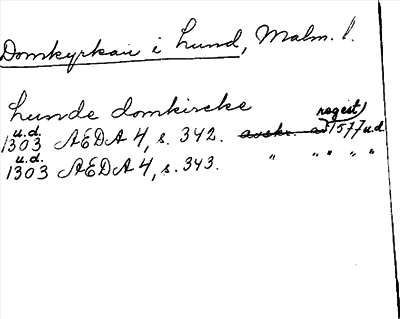 Domkyrkan i Lund, Malm. l.
Lunde domkircke
1303 u.d. AEDA 4, s. 342. avskr. av regest 1577 u.d
1303 u.d. AEDA 4, s. 343. " " " " "